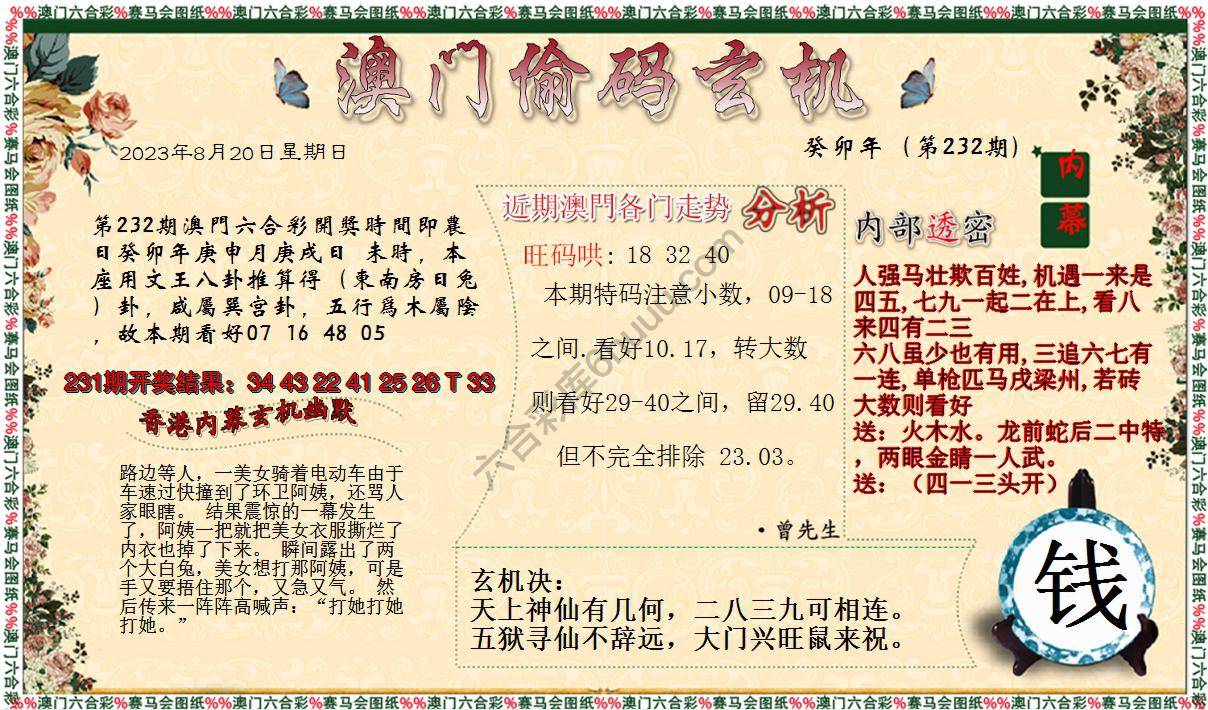 %%澳门六合彩%赛马会图纸%%澳门六合彩%赛马会图纸%%澳门六合彩%赛马会图纸%%澳门六合彩%赛马会图纸%%澳门六合彩%赛马会图纸%%澳门六合彩%赛马会图纸%%
澳门偷码玄机
2023年8月20日星期日
癸卯年（第232期）
内
幕
第232期澳門六合彩開獎時間即農
日癸卯年庚申月庚戌日 未時，本
座用文王八卦推算得（東南房日兔
）卦，咸屬巽宫卦，五行爲木屬陰
，故本期看好07 16 48 05
231期开奖结果：34 43 22 41 25 26 T 33
香港内幕玄机幽默
路边等人，一美女骑着电动车由于
车速过快撞到了环卫阿姨，还骂人
家眼瞎。 结果震惊的一幕发生
了，阿姨一把就把美女衣服撕烂了
内衣也掉了下来。 瞬间露出了两
个大白兔，美女想打那阿姨，可是
手又要捂住那个，又急又气。 然
后传来一阵阵高喊声：“打她打她
打她。”
近期澳門各门走势 分析
旺码哄: 18 32 40
本期特码注意小数，09-18
之间.看好10.17，转大数
则看好29-40之间，留29.40
但不完全排除 23.03。
·曾先生
玄机决：
天上神仙有几何，二八三九可相连。
五狱寻仙不辞远，大门兴旺鼠来祝。
内部透密
人强马壮欺百姓,机遇一来是
四五,七九一起二在上,看八
来四有二三
六八虽少也有用,三追六七有
一连,单枪匹马戌梁州,若砖
大数则看好
送：火木水。龙前蛇后二中特
，两眼金睛一人武。
送：（四一三头开）
钱
%%澳门六合彩%赛马会图纸%%澳门六合彩%赛马会图纸%%澳门六合彩%赛马会图纸%%澳门六合彩%赛马会图纸%%澳门六合彩%赛马会图纸%%澳门六合彩%赛马会图纸%%